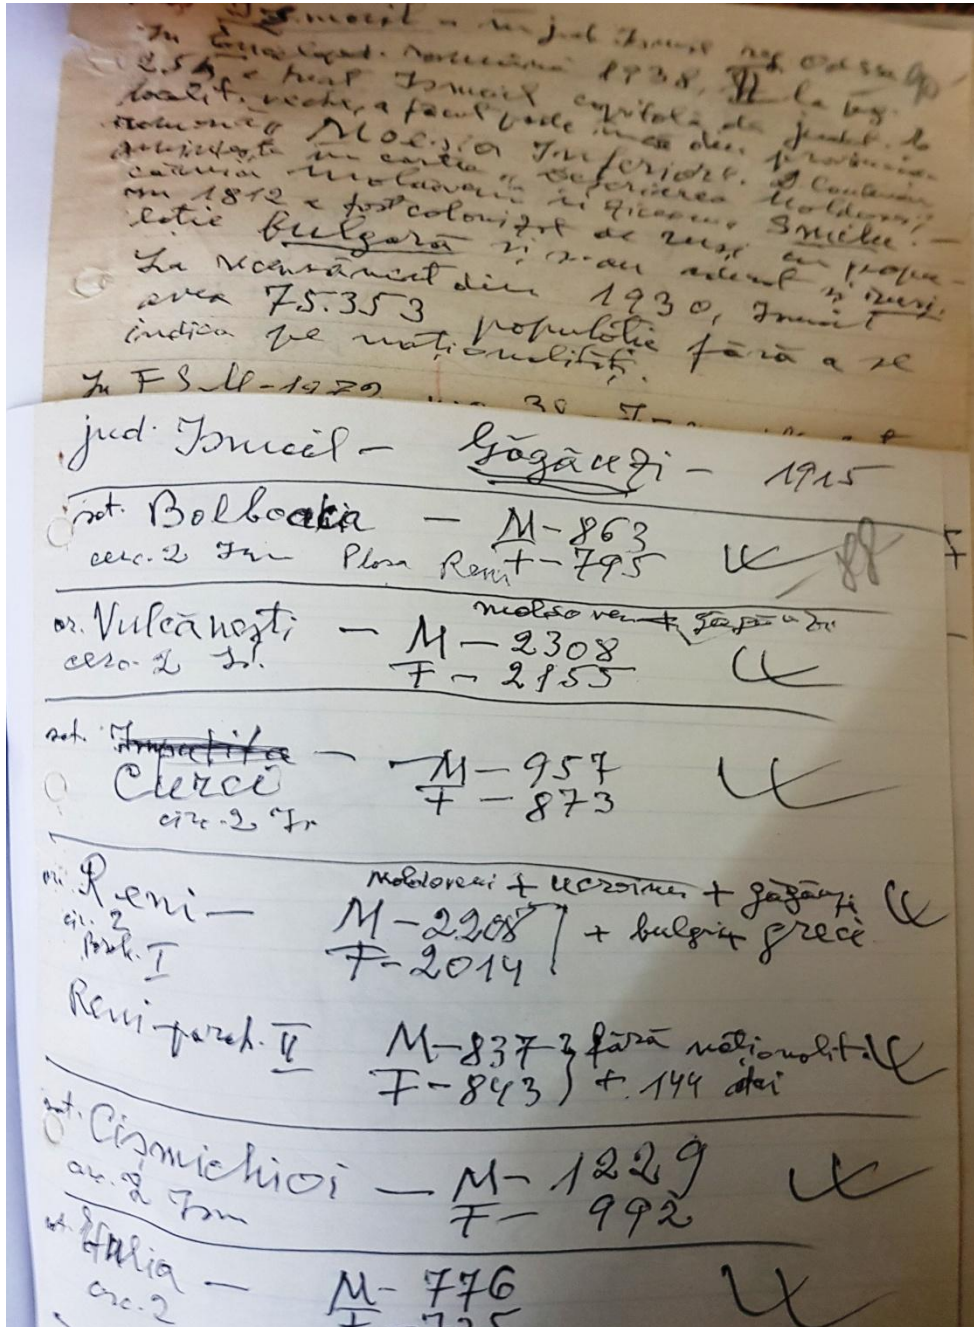 Ismail - în jud. Ismail reg. Odessa
In Encicloped. română 1938, II la pag.
254 e trecut Ismail capitala de județ. E
localit. veche, a făcut parte încă din provincia
romană Moesia Inferior. D. Cantemir
amintește în cartea „Descrierea Moldovei"
că moldovenii îi ziceau Smilu. -
în 1812 a fost colonizat de ruși cu popu-
lație bulgară și s-au așezat și ruși.
La recensământ din 1930, Ismail
avea 75.353 populatie fără a se
indica pe naționalități.
In FSM-1979 38
jud. Ismail - Găgăuzi - 1915
sat. Bolboaca - M-863
circ. 2 Ism Plasa Reni F-795
88
moldoveni + găgăuzi
or. Vulcănești - M-2308
circ. 2 Is. F-2155
sat. Impuțita -
Curci M-957
circ. 2 Is F-873
or. Reni - moldoveni + ucraineni + găgăuzi
cir. 2 M-2208 + bulgari + greci
Paroh. I F-2014
Reni-paroh. II M-837 } fără naționalit.
F-843 } + 144 alți
sat. Cișmichioi - M-1229
circ. 2 Ism F-992
sat. Etulia - M-776
circ. 2 F-725